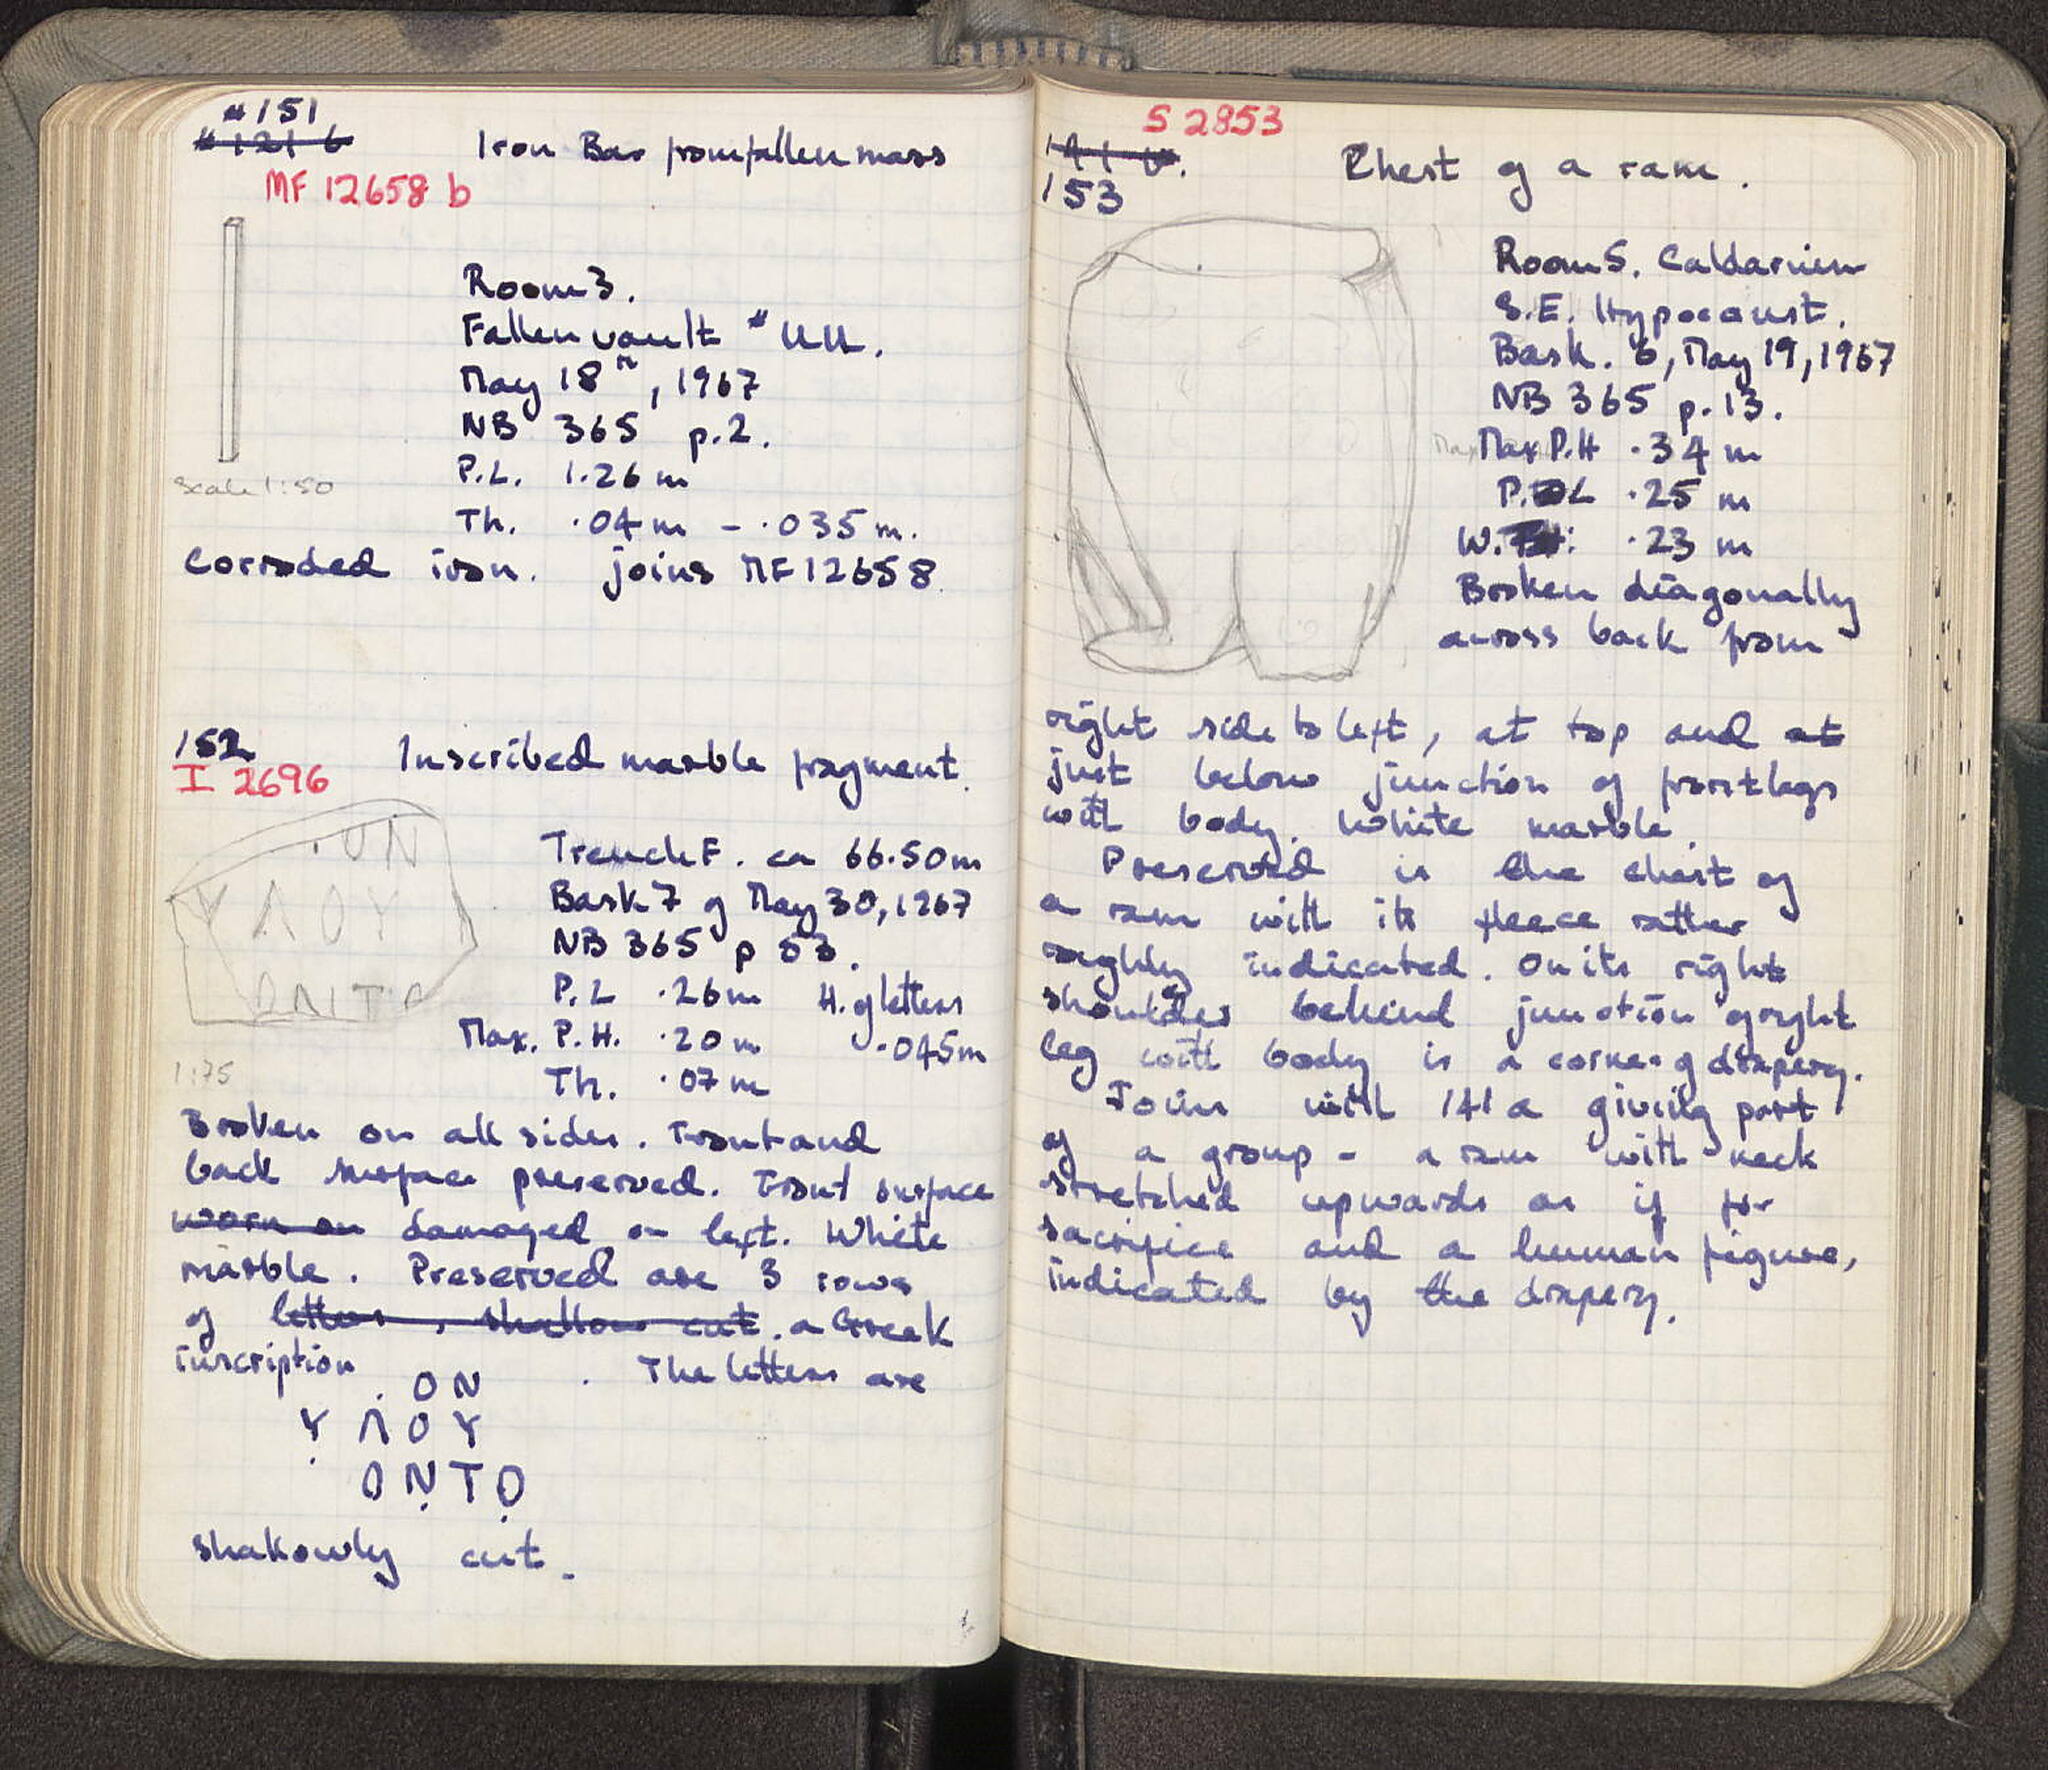 #151
#121 b
Iron Bar from fallen mass
MF 12658 b
Room 3.
Fallen vault # UU.
May 18th, 1967
NB 365 p.2.
P.L. 1.26 m
Scale 1:50
Th. .04 m - .035 m.
Corroded iron. joins MF 12658.
152
I 2696
Inscribed marble fragment.
.ON
YΛOY
ONTO
Trench F. ca 66.50m
Bask 7 of May 30, 1967
NB 365 p 53.
P.L .26m H. of letters
Max. P.H. .20 m .045m
1:75
Th. .07 m
Broken on all sides. Front and
back surface preserved. Front surface
worn on damaged on left. White
marble. Preserved are 3 rows
of letters, shallow cut. a Greek
inscription . The letters are
. ON
YΛOY
ONTO
shallowly cut.
S 2853
141 b.
153
Chest of a ram.
Room 5. Caldarium
S.E. Hypocaust.
Bask. 6, May 19, 1967
NB 365 p.13.
Max P.H .34 m
P. L .25 m
W. .23 m
Broken diagonally
across back from
right side to left, at top and at
just below junction of front legs
with body. White marble.
Preserved is the chest of
a ram with its fleece rather
roughly indicated. On its right
shoulder behind junction of right
leg with body is a corner of drapery.
Joins with 141 a giving part
of a group - a ram with neck
stretched upwards as if for
sacrifice and a human figure,
indicated by the drapery.